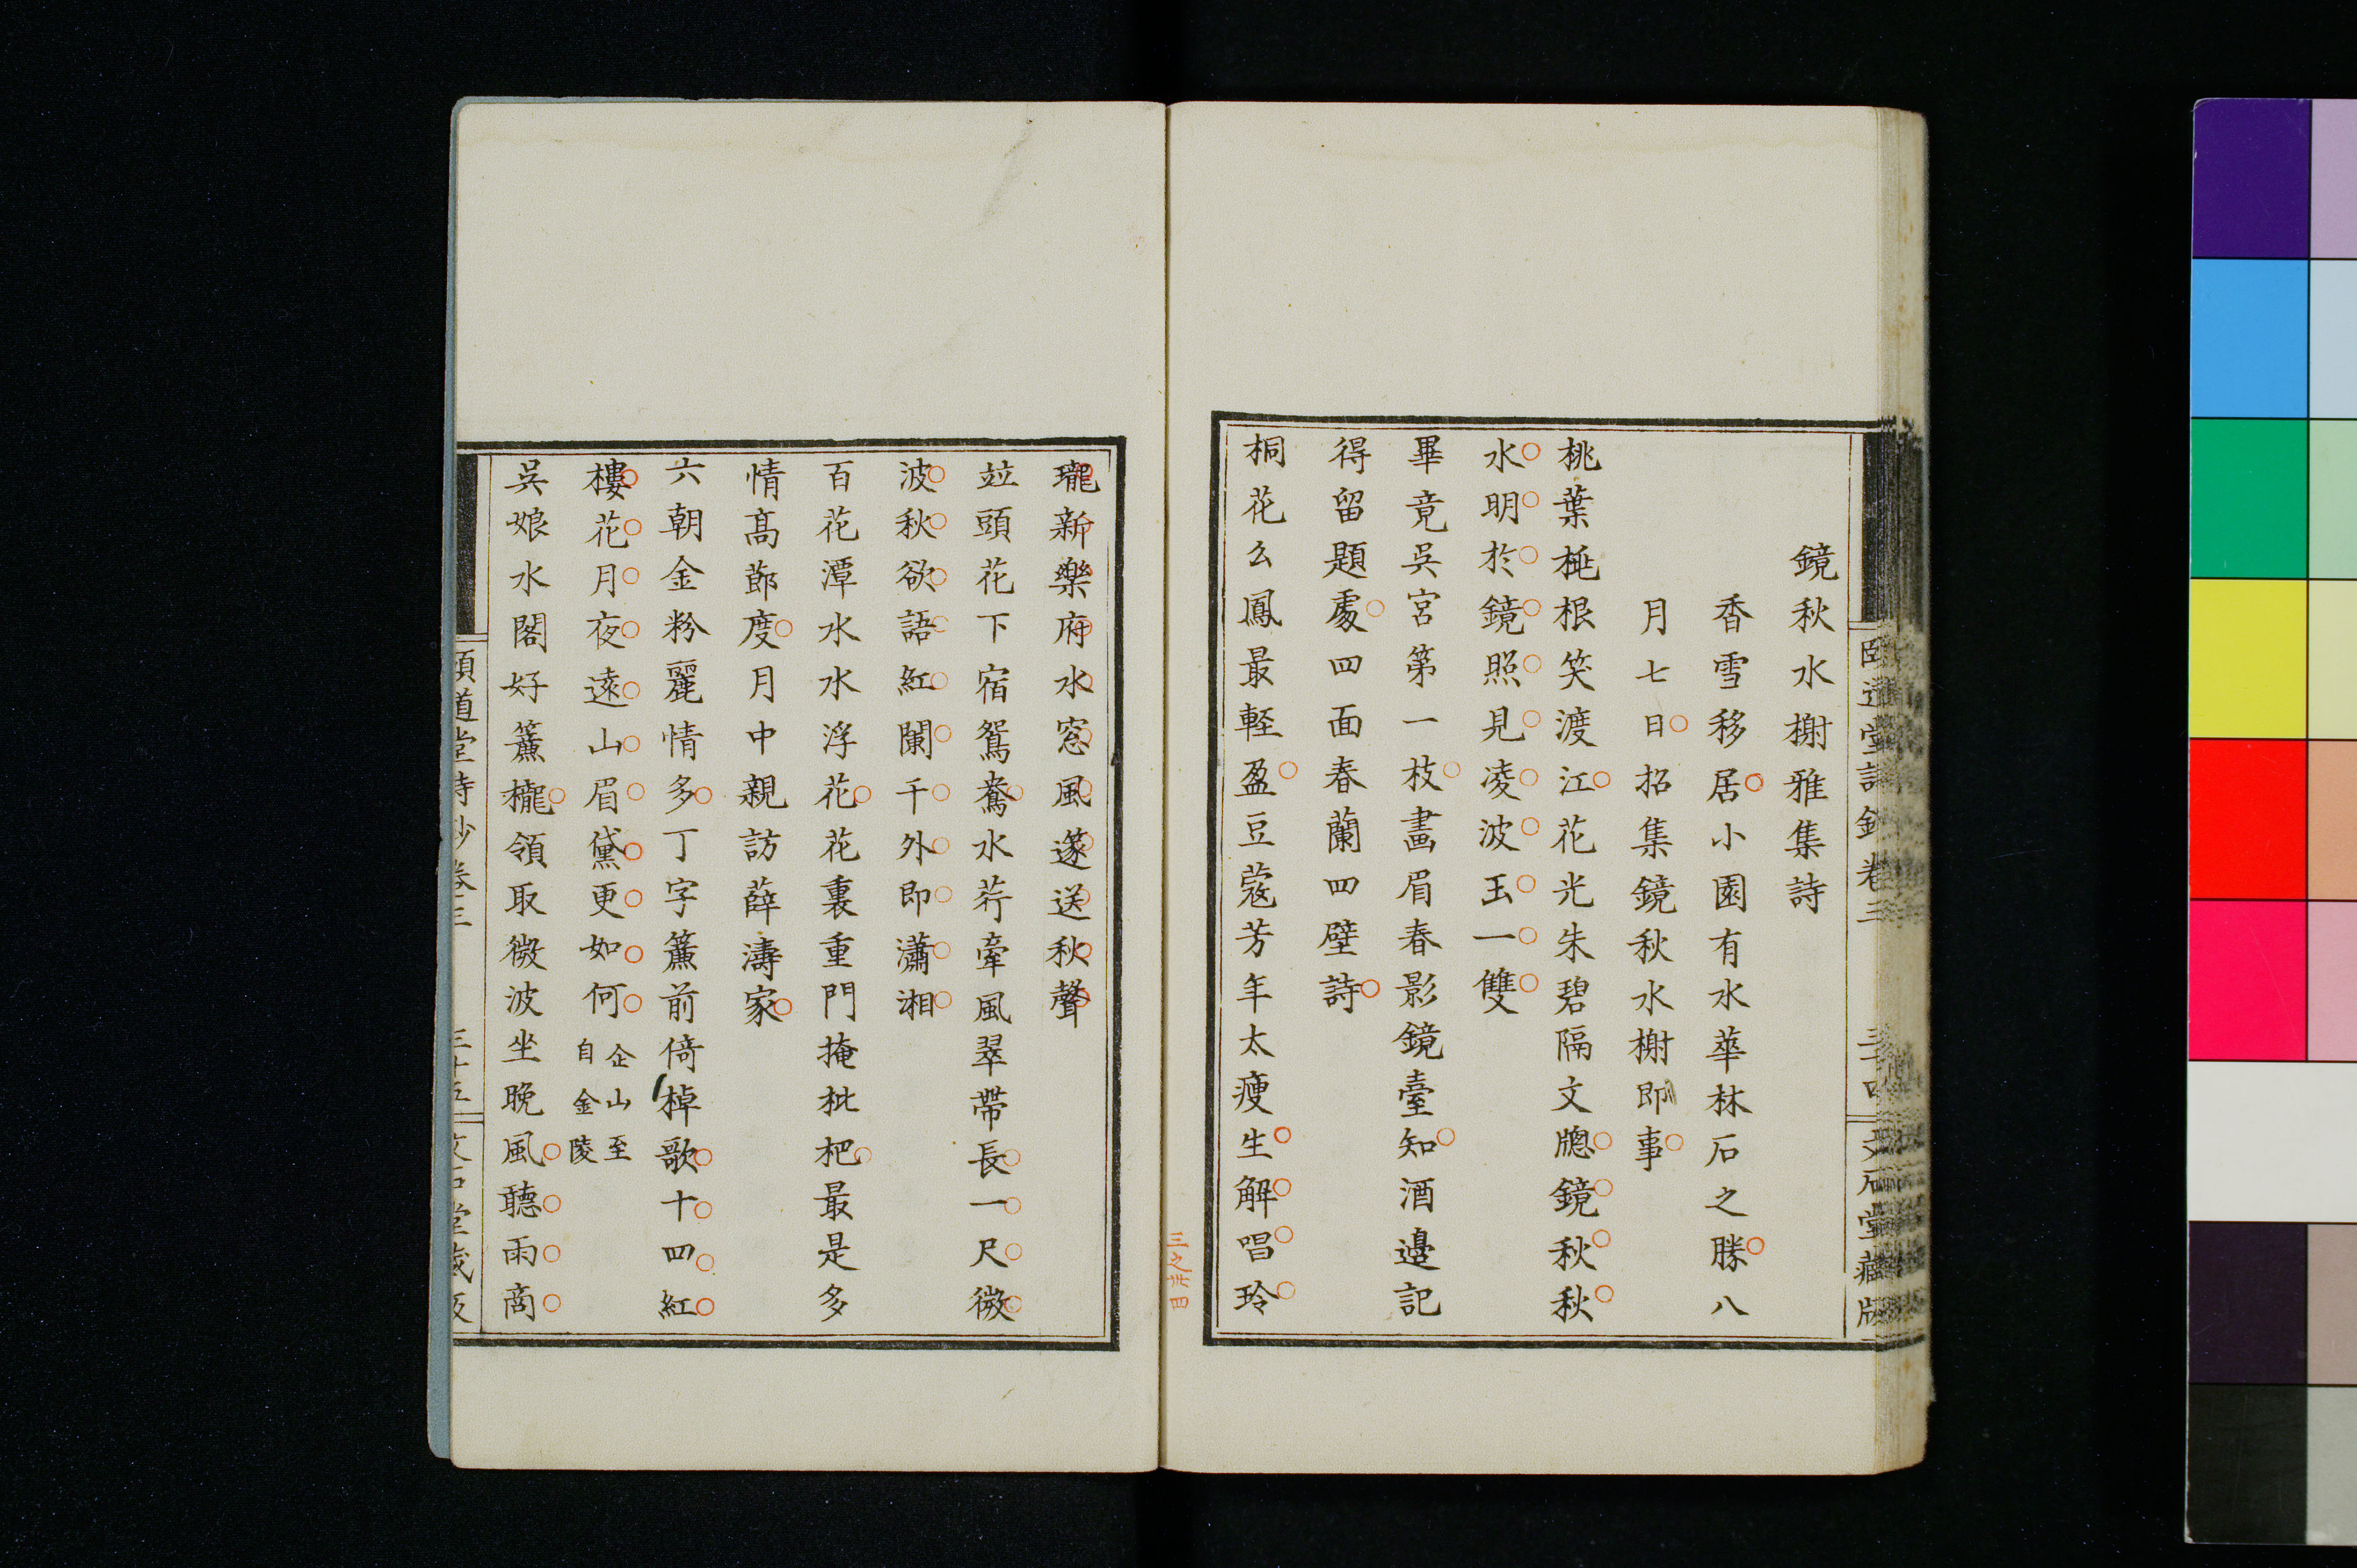 鏡秋水榭雅集詩
香雪移居小園有水華林石之勝八
月七日招集鏡秋水榭即事
桃葉桃根笑渡江花光朱碧隔文牕鏡秋秋
水明於鏡照見凌波玉一雙
畢竟吳宮第一枝畫眉春影鏡臺知酒邊記
得留題處四面春蘭四壁詩
桐花么鳳最輕盈豆蔻芳年太瘦生解唱玲
瓏新樂府水窓風篴送秋聲
竝頭花下宿鴛鴦水荇牽風翠帶長一尺微
波秋欲語紅闌干外即瀟湘
百花潭水水浮花花裏重門掩枇杷最是多
情高節度月中親訪薛濤家
六朝金粉麗情多丁字簾前倚棹歌十四紅
樓花月夜遠山眉黛更如何
企山至
自金陵
吳娘水閣好簾櫳領取微波坐晚風聽雨商
頤道堂詩鈔卷三
三十五